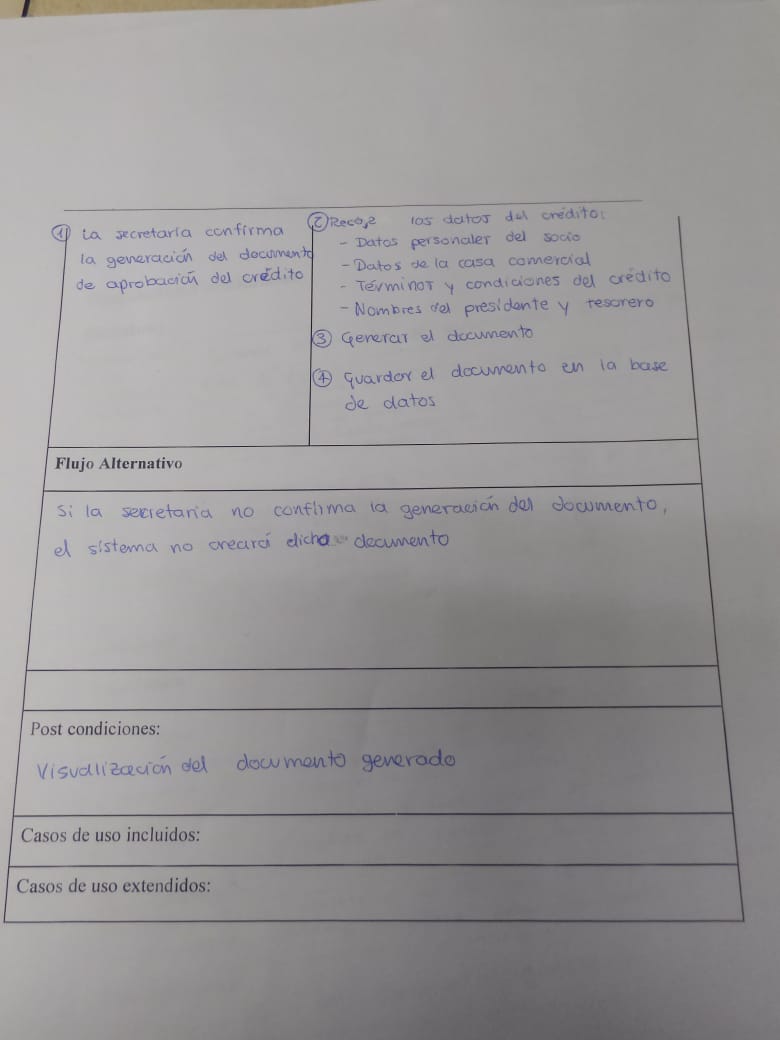 ① La secretaría confirma
la generación del documento
de aprobación del crédito
② Recoge los datos del crédito:
- Datos personales del socio
- Datos de la casa comercial
- Términos y condiciones del crédito
- Nombres del presidente y tesorero
③ Generar el documento
④ Guardar el documento en la base
de datos
Flujo Alternativo
Si la secretaria no confirma la generación del documento,
el sistema no creará dicho documento
Post condiciones:
Visualización del documento generado
Casos de uso incluidos:
Casos de uso extendidos: